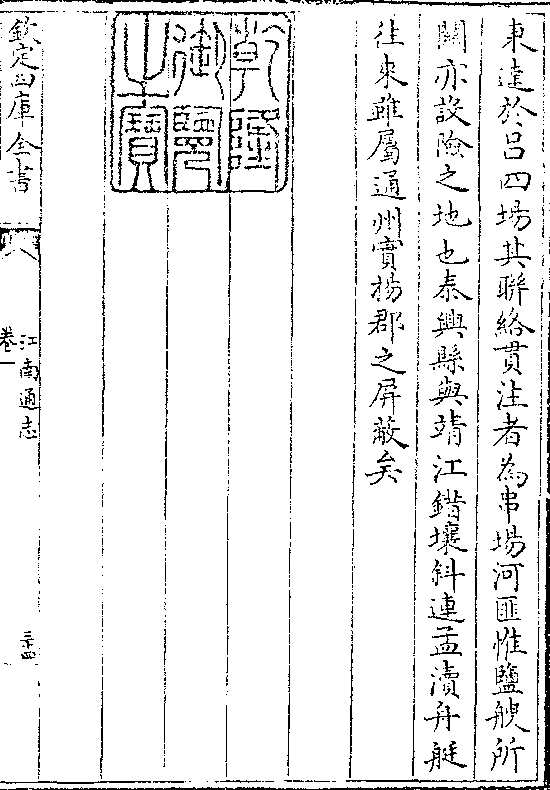 東達於吕四場其聯絡貫注者為串場河匪惟鹽艘所
關亦設險之地也泰興縣與靖江錯壤斜連孟瀆舟艇
往來雖屬通州實揚郡之屏蔽矣
乾隆
御覽
之寶
欽定四庫全書
江南通志
卷一
三十四